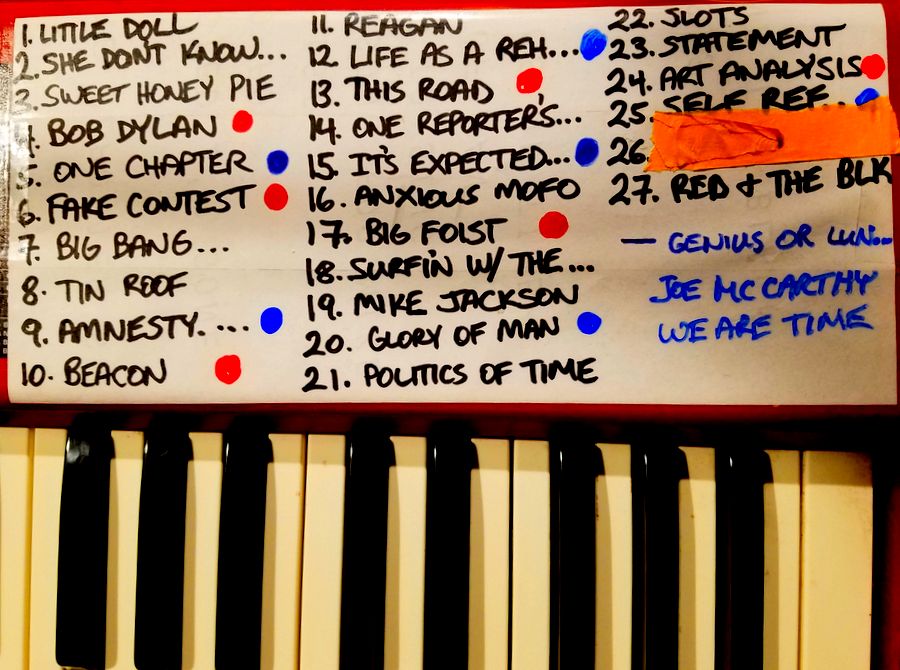 1. LITTLE DOLL
2. SHE DON'T KNOW...
3. SWEET HONEY PIE
4. BOB DYLAN
5. ONE CHAPTER
6. FAKE CONTEST
7. BIG BANG...
8. TIN ROOF
9. AMNESTY. ...
10. BEACON
11. REAGAN
12. LIFE AS A REH...
13. THIS ROAD
14. ONE REPORTER'S...
15. IT'S EXPECTED...
16. ANXIOUS MOFO
17. BIG FOIST
18. SURFIN W/ THE...
19. MIKE JACKSON
20. GLORY OF MAN
21. POLITICS OF TIME
22. SLOTS
23. STATEMENT
24. ART ANALYSIS
25. SELF REF..
26.
27. RED & THE BLK
— GENIUS OR LUN...
JOE MCCARTHY
WE ARE TIME